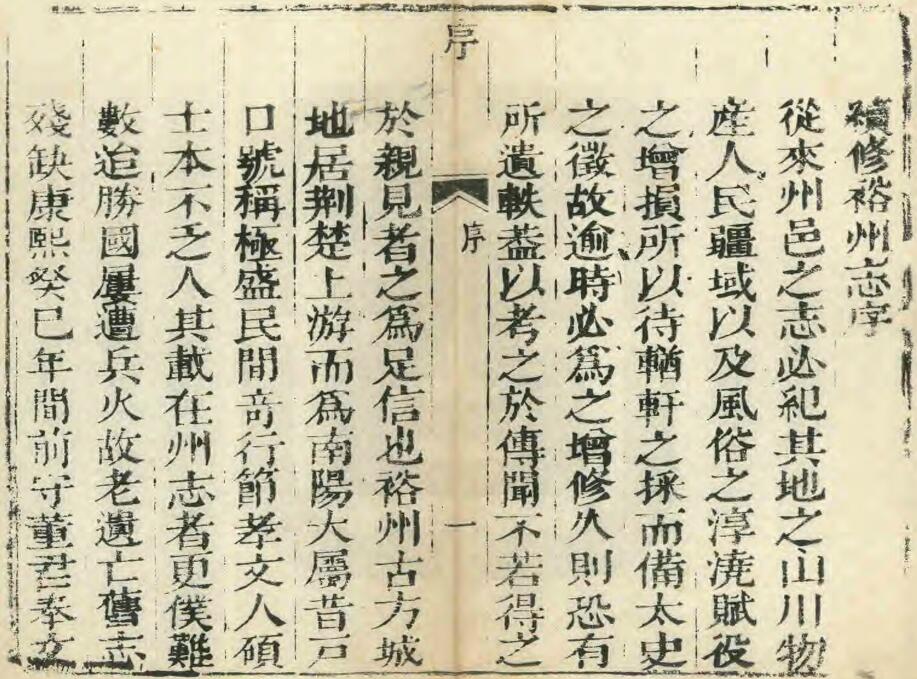 續修裕州志序
從來州邑之志必紀其地之山川物
產人民疆域以及風俗之淳澆賦役
之增損所以待輶軒之採而備太史
之徵故逾時必爲之增修久則恐有
所遺軼葢以考之於傳聞不若得之
序
序
一
於親見者之爲足信也裕州古方城
地居荆楚上游而爲南陽大屬昔戸
口號稱極盛民間奇行節孝文人碩
士本不乏人其載在州志者更僕難
數迨勝國屢遭兵火故老遺亡舊志
殘缺康熙癸巳年間前守董君奉文